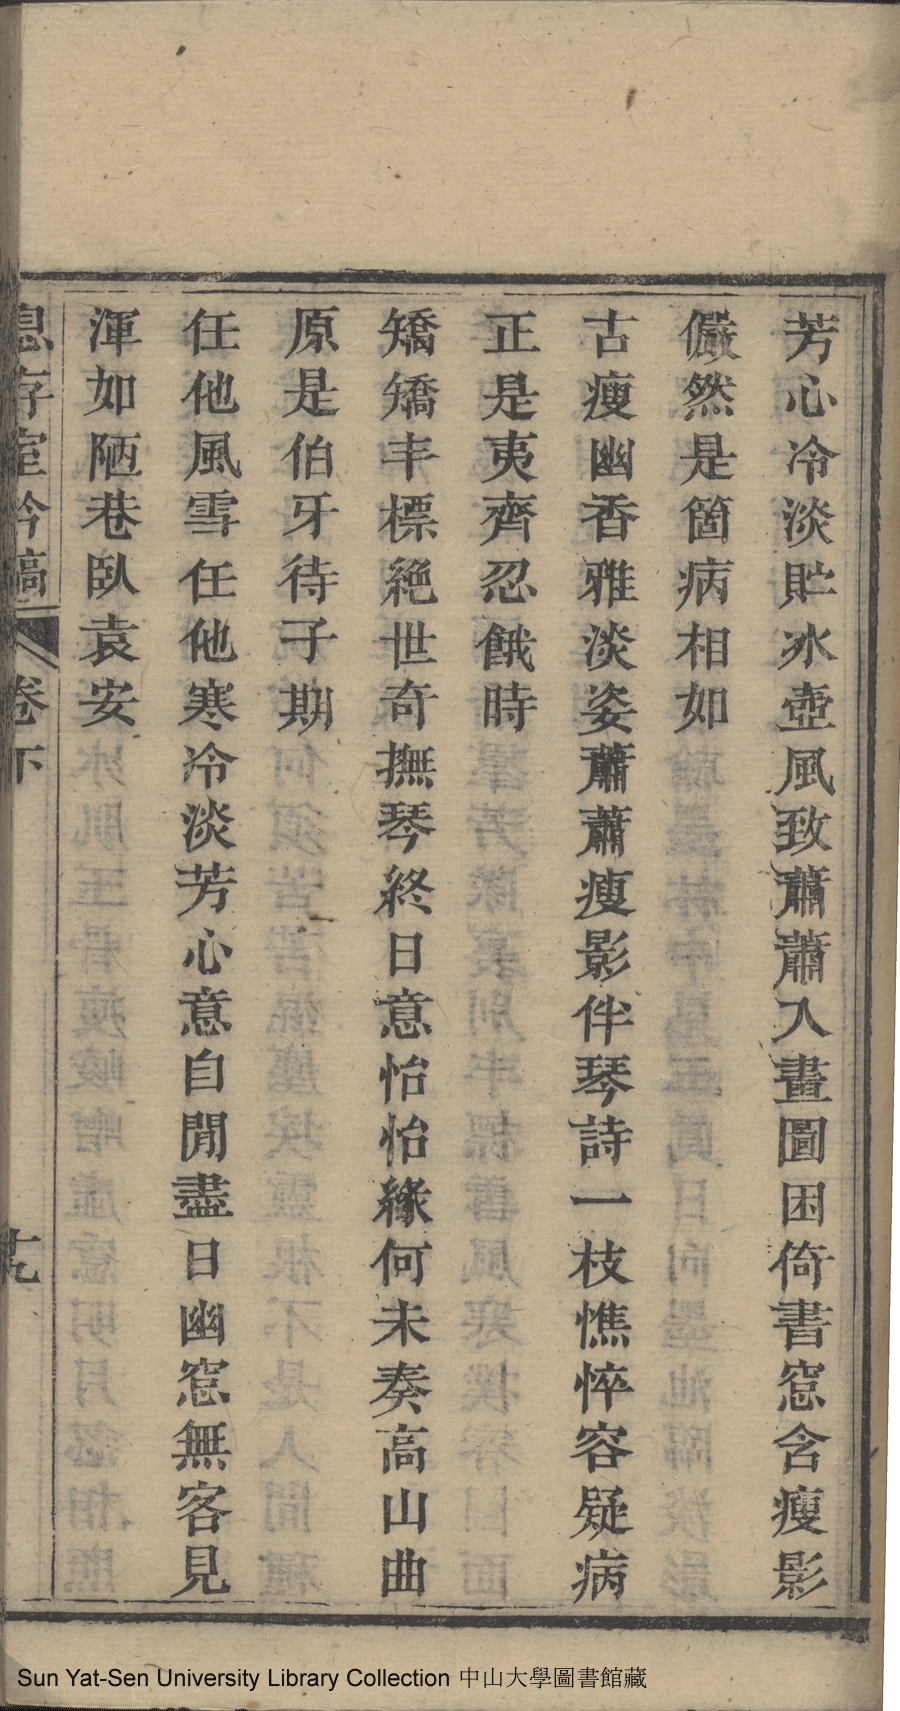 芳心冷淡貯冰壺風致蕭蕭入畫圖困倚書窓含瘦影
儼然是箇病相如
古瘦幽香雅淡姿蕭蕭瘦影伴琴詩一枝憔悴容疑病
正是夷齊忍餓時
矯矯丰標絕世奇撫琴終日意怡怡緣何未奏高山曲
原是伯牙待子期
任他風雪任他寒冷淡芳心意自閒盡日幽窓無客見
渾如陋巷臥袁安
息存室吟稿 卷下 十九
Sun Yat-Sen University Library Collection 中山大學圖書館藏